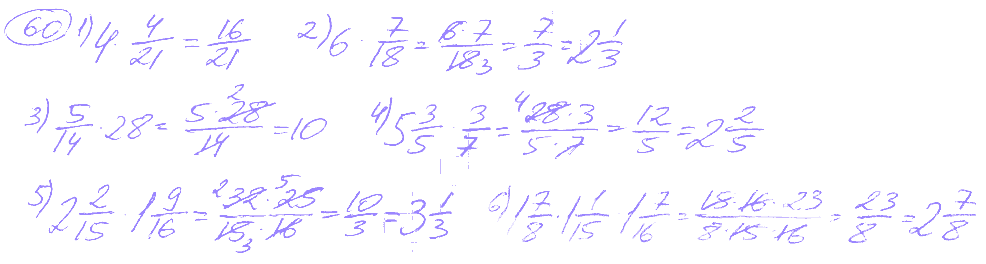 60 1) 4 · 4/21 = 16/21 2) 6 · 7/18 = 6·7/18 3 = 7/3 = 2 1/3
3) 5/14 · 28 = 5·28 2/14 = 10 4) 5 3/5 · 3/7 = 4 28·3/5·7 = 12/5 = 2 2/5
5) 2 2/15 · 1 9/16 = 2 32·25 5/15 3·16 = 10/3 = 3 1/3 6) 1 7/8 · 1 1/15 · 1 7/16 = 15·16·23/8·15·16 = 23/8 = 2 7/8